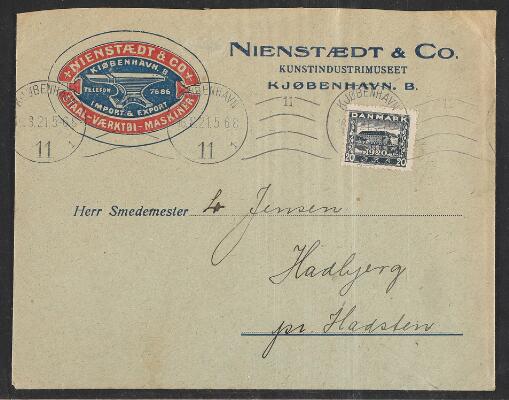 NIENSTÆDT & CO
KJØBENHAVN. B
TELEFON 7686
IMPORT & EXPORT
STAAL-VÆRKTØI-MASKINER
NIENSTÆDT & CO.
KUNSTINDUSTRIMUSEET
KJØBENHAVN. B.
KJØBENHAVN
.8.21.5-6 E
11 1
KJØBENHAVN
.8.21.5-6 E
11 1
11
KJØBENHAVN
DANMARK
1920
20 20
Herr Smedemester Jensen
Hadbjerg
pr. Hadsten